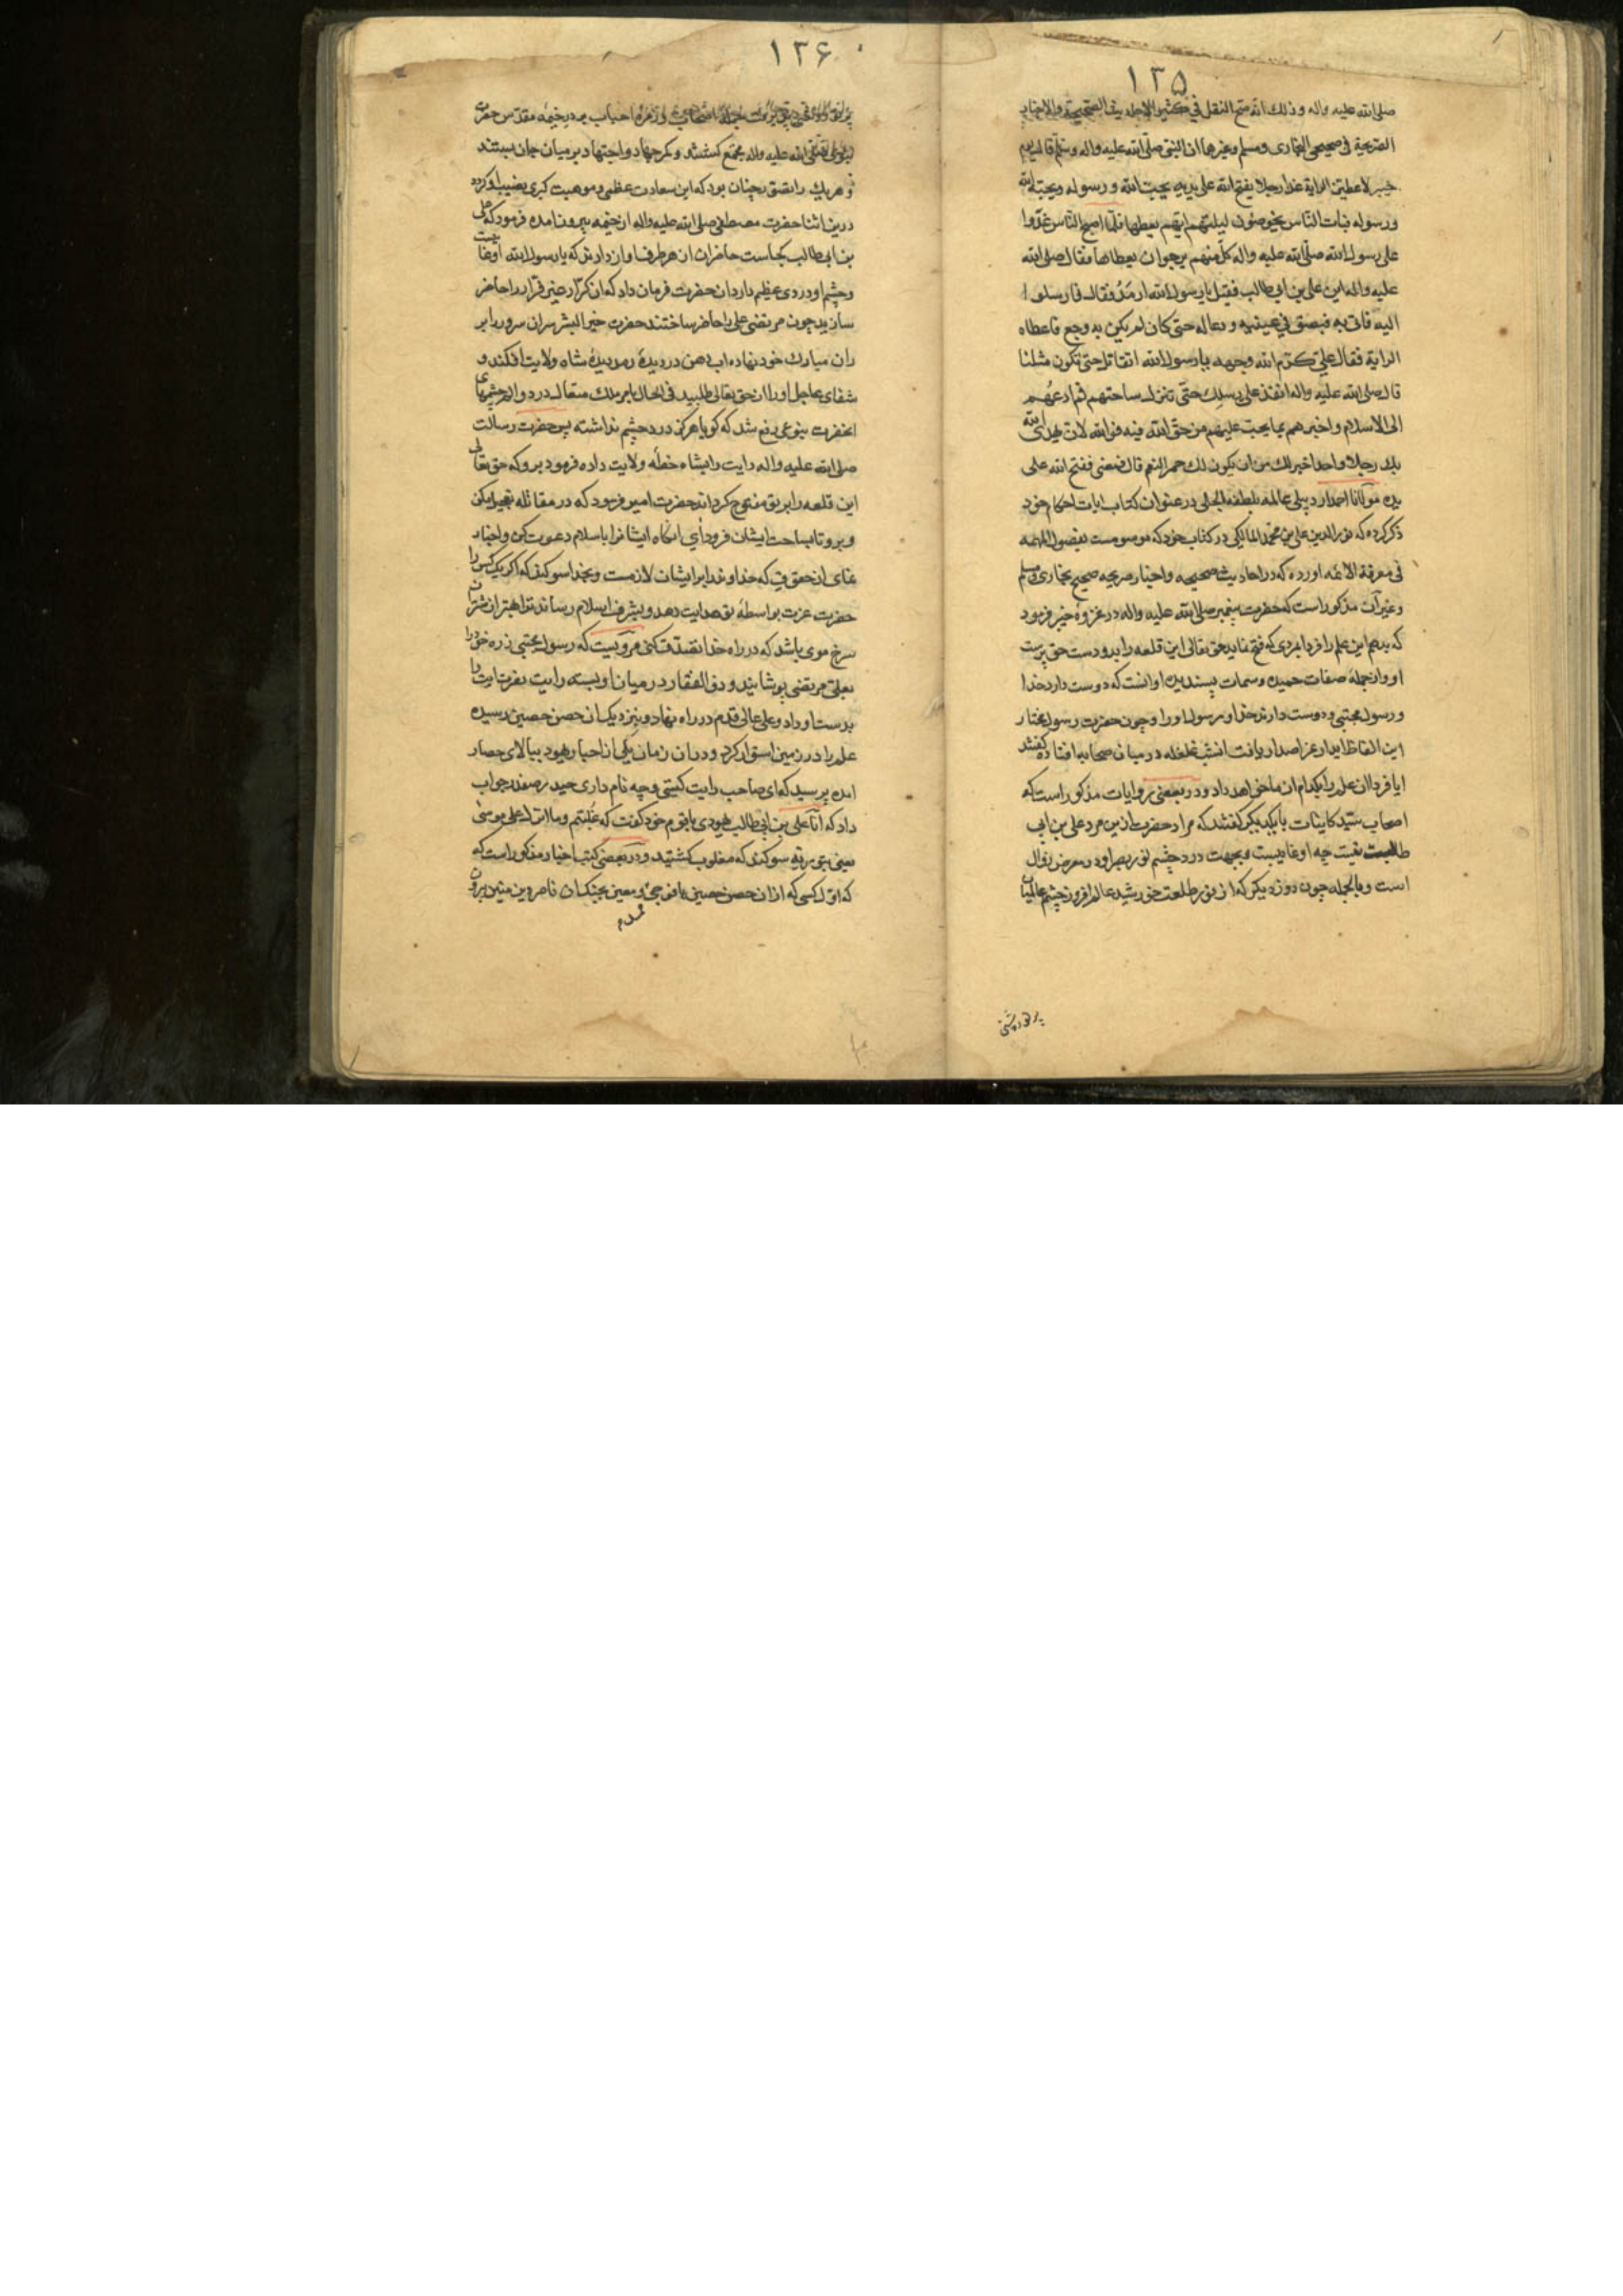 ١٣۵
صلی الله علیه واله و ذلك انه صح النقل فی كثیر الاحادیث الصحیحة والاخبار
الصریحة فی صحیحی البخاری ومسلم وغیرها ان النبی صلی الله علیه واله وسلم قال یوم
خیبر لاعطین الرایة غدا رجلا یفتح الله علی یدیه یحب الله و رسوله و یحبه الله
ورسوله فبات الناس یخوضون لیلتهم ایهم یعطیها فلما اصبح الناس غدوا
علی رسول الله صلی الله علیه واله كل منهم یرجوان یعطاها فقال صلی الله
علیه واله این علی بن ابی طالب فقیل یا رسول الله ارمد فقال فارسلوا
الیه فاتی به فبصق فی عینیه و دعا له حتی كان لم یكن به وجع فاعطاه
الرایة فقال علی كرم الله وجهه یا رسول الله اقاتلهم حتی تكون مثلنا
قال صلی الله علیه واله انفذ علی رسلك حتی تنزل ساحتهم ثم ادعهم
الی الاسلام و اخبرهم بما یجب علیهم من حق الله فیه فوالله لان یهدی الله
بك رجلا واحدا خیر لك من ان یكون لك حمر النعم قال فمضی ففتح الله علی
یده مولانا احمد اردبیلی عامله بلطفه الجلی در عنوان كتاب ایات احكام خود
ذكر كرده كه نور الدین علی بن محمد المالكی در كتاب خود كه موسومست بفصول المهمه
فی معرفة الائمه اورده كه در احادیث صحیحه و اخبار صریحه صحیح بخاری و مسلم
وغیر آن مذكور است كه حضرت پیغمبر صلی الله علیه واله در غزوه خیبر فرمود
كه بدهم این علم را فردا بمردی كه فتح نماید حق تعالی این قلعه را بدو دست حق پرست
او و از جمله صفات حمیده و سمات پسندیده او انست كه دوست دارد خدا
و رسول مجتبی و دوست دارند خدا و رسول او را و چون حضرت رسول مختار
این الفاظ ابدار عز اصدار یافت انشب غلغله در میان صحابه افتاده گفتند
ایا فردا ان علم را بكدام از ما خواهد داد و در بعضی روایات مذكور است كه
اصحاب سید كاینات با یكدیكر گفتند كه مراد حضرت ازین مرد علی بن ابی
طالب نیست چه او غایبست و بجهت درد چشم نور بصر او در معرض زوال
است و بالجمله چون روز دیكر كه از نور طلعت خورشید عالم افروز چشم عالمیان
پر نور و روشنی
١٣۶
احباب بر در خیمه مقدس حضرت
نبوی صلی الله علیه واله مجتمع گشتند و كمر جهاد و اجتهاد بر میان جان بستند
و هریك را تصور چنان بود كه این سعادت عظمی و موهبت كبری نصیب او كردد
در این اثنا حضرت مصطفی صلی الله علیه واله از خیمه بیرون امده فرمود كه علی
بن ابی طالب كجاست حاضران از هر طرف اواز دادند كه یا رسول الله او غایبست
و چشم او دردی عظیم دارد ان حضرت فرمان داد كه ان كرار غیر فرار را حاضر
سازید چون مرتضی علی را حاضر ساختند حضرت خیر البشر سران سرور را بر
ران مبارك خود نهاده اب دهن در دیدهٔ رمد دیدهٔ شاه ولایت افكند و
شفای عاجل او را از حق تعالی طلبید فی الحال بامر ملك متعال درد و الم چشمهای
انحضرت بنوعی رفع شد كه كویا هركز درد چشم نداشته پس حضرت رسالت
صلی الله علیه واله رایت را بشاه خطهٔ ولایت داده فرمود برو كه حق تعالی
این قلعه را بر تو مفتوح كرداند حضرت امیر فرمود كه در مقاتله تعجیل مكن
و برو تا بساحت ایشان فرود آی انكاه ایشانرا باسلام دعوت كن و اخبار
نمای از حقوقی كه خداوند را بر ایشان لازمست و بخدا سوكند كه اگر یك كس را
حضرت عزت بواسطهٔ تو هدایت دهد و بشرف اسلام رساند ترا بهتر از شتران
سرخ موی باشد كه در راه خدا تصدق كنی مرویست كه رسول مجتبی زره خود را
بعلی مرتضی پوشانید و ذو الفقار در میان او بسته رایت نصرت ایت را
بدست او داد و علی عالی قدم در راه نهاد و بنزدیك ان حصن حصین رسیده
علم را در زمین استوار كرد و در ان زمان یكی از احبار یهود ببالای حصار
امده پرسید كه ای صاحب رایت كیستی و چه نام داری حیدر صفدر جواب
داد كه انا علی بن ابی طالب یهودی با قوم خود كفت كه غلبتم و ما انزل علی موسی
یعنی بتوریة سوكند كه مغلوب گشتید و در بعضی كتب اخبار مذكور است كه
كه اول كسی كه از ان حصن حصین با فوجی بجنك ان ناصر دین متین بیرون